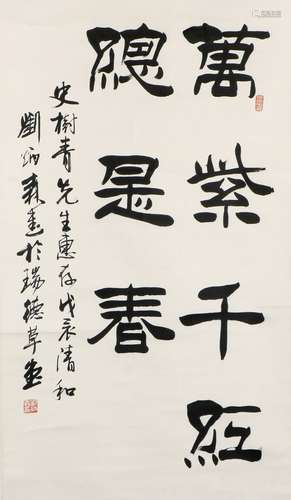 萬紫千紅
總是春
史樹青先生惠存戊辰清和
劉炳森書於瑞德草堂